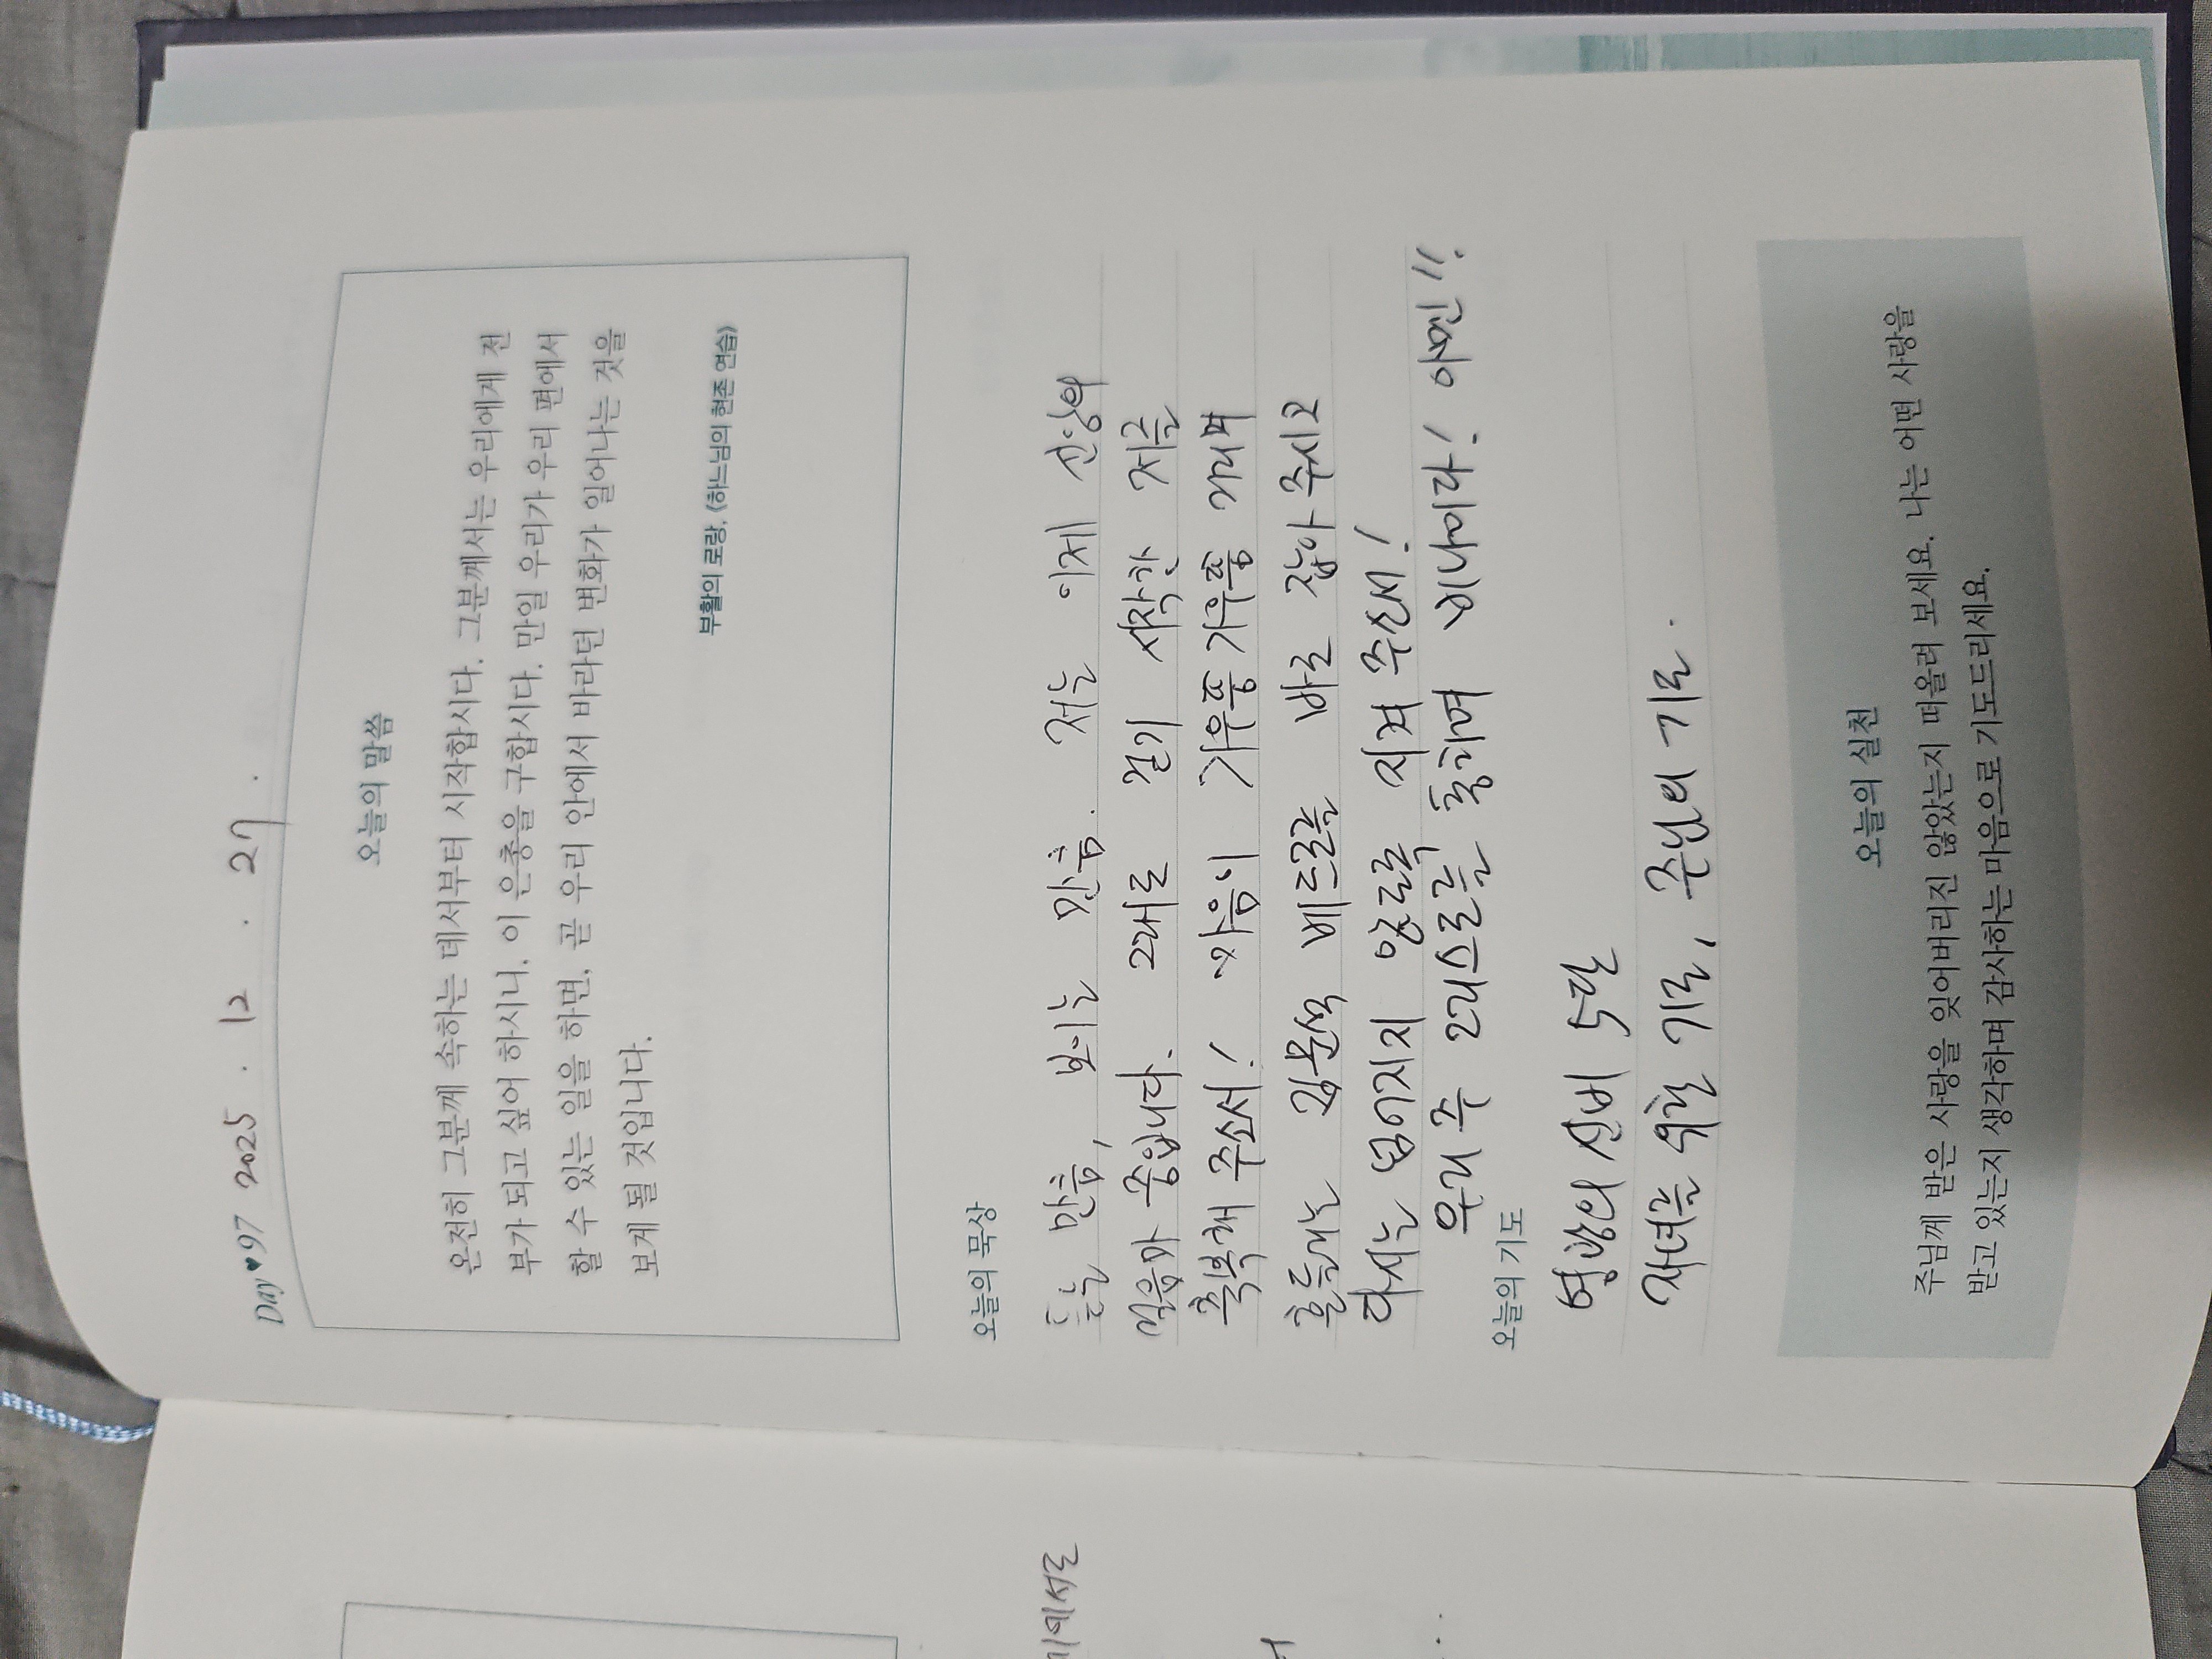 Day♥97 2025. 12. 27.
오늘의 말씀
온전히 그분께 속하는 데서부터 시작합시다. 그분께서는 우리에게 전
부가 되고 싶어 하시니, 이 은총을 구합시다. 만일 우리가 우리 편에서
할 수 있는 일을 하면, 곧 우리 안에서 바라던 변화가 일어나는 것을
보게 될 것입니다.
부활의 로랑, 《하느님의 현존 연습》
오늘의 묵상
듣는 만큼, 보이는 만큼. 저는 이제 신앙의
걸음마 중입니다. 그대로 걷기 시작한 저를
축복해 주소서! 마음이 기우뚱 기우뚱 거리며
흔들리는 김문석 베드로를 바로 잡아 주시고
다시는 넘어지지 않도록 지켜 주소서!
우리 주 그리스도를 통하여 비나이다! 아멘!!
오늘의 기도
영광의 신비 5단
자녀를 위한 기도, 주님의 기도.
오늘의 실천
주님께 받은 사랑을 잊어버리진 않았는지 떠올려 보세요. 나는 어떤 사랑을
받고 있는지 생각하며 감사하는 마음으로 기도드리세요.